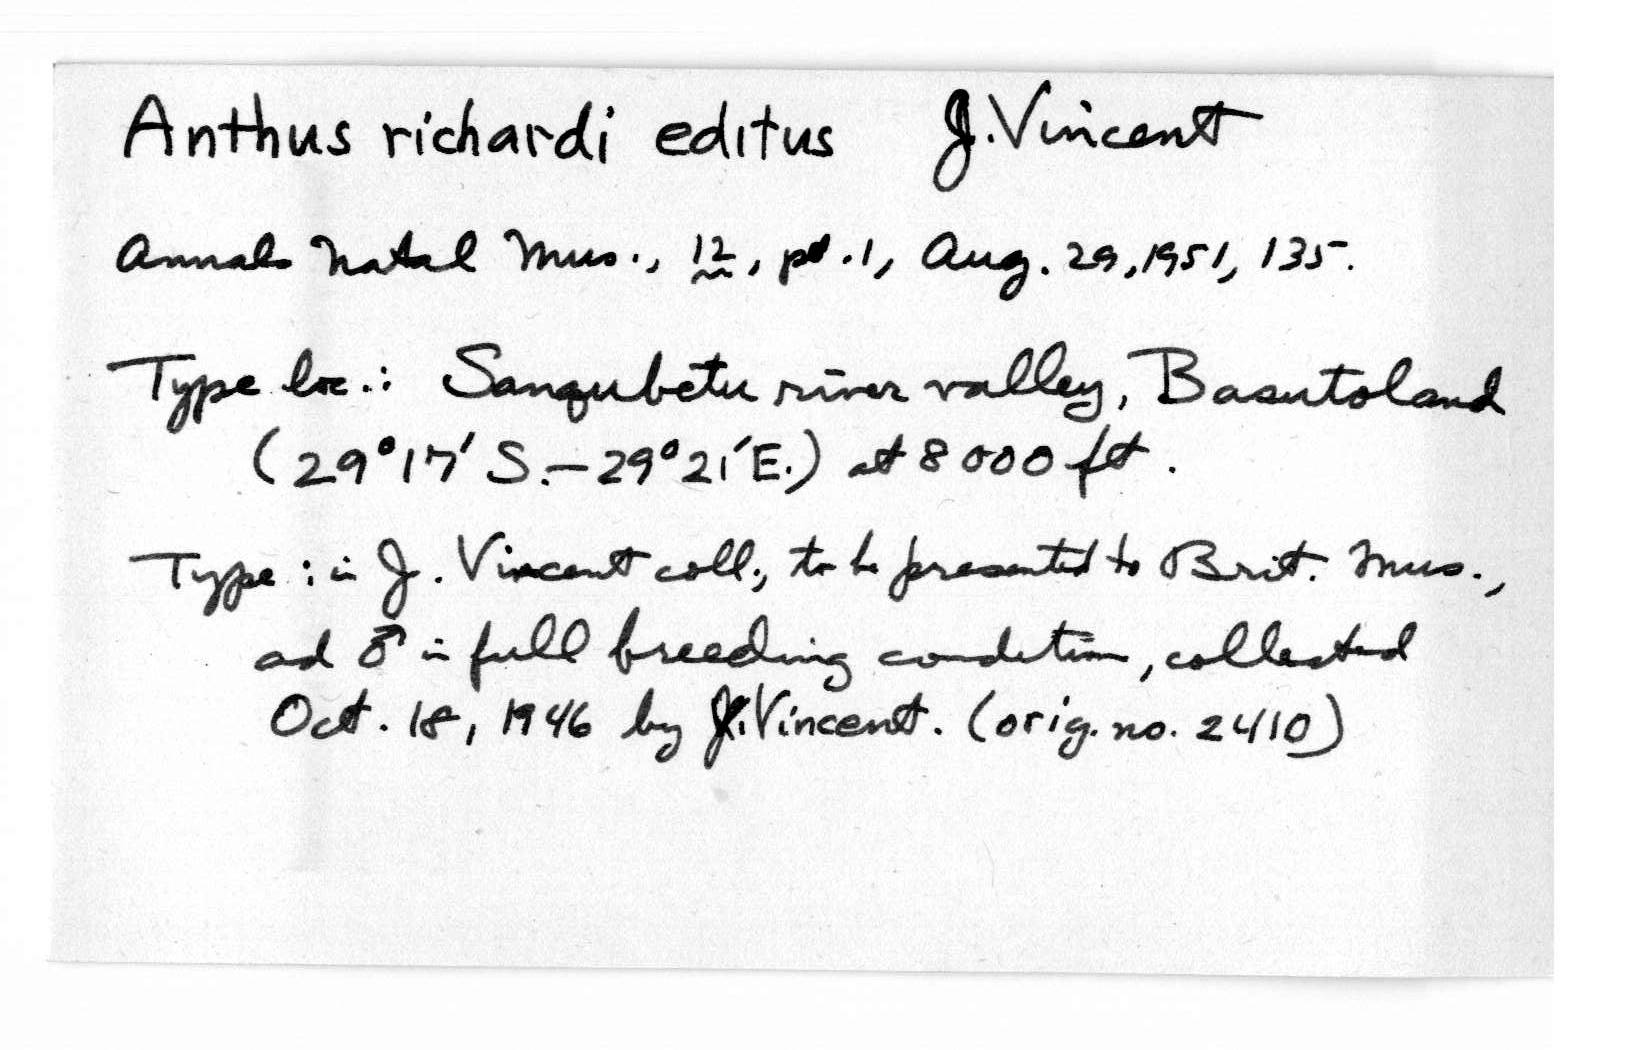 Anthus richardi editus J. Vincent
Annals Natal Mus., 12, pt. 1, Aug. 29, 1951, 135.
Type loc.: Sanqubetu river valley, Basutoland
(29°17' S.–29°21'E.) at 8000 ft.
Type: in J. Vincent coll., to be presented to Brit. Mus.,
ad ♂ in full breeding condition, collected
Oct. 18, 1946 by J. Vincent. (orig. no. 2410)